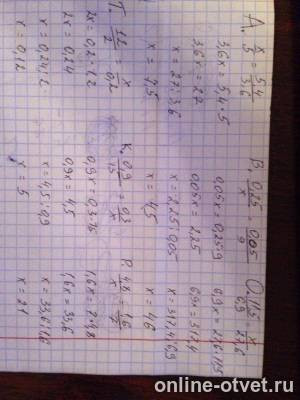 А. x/5 = 5,4/3,6
3,6x = 5,4·5
3,6x = 27
x = 27:3,6
x = 7,5
В. 0,25/x = 0,05/9
0,05x = 0,25·9
0,05x = 2,25
x = 2,25:0,05
x = 45
О. 11,5/6,9 = x/27,6
6,9x = 27,6·11,5
6,9x = 317,4
x = 317,4:6,9
x = 46
Т.
2x = 0,2·1,2
2x = 0,24
x = 0,24:2
x = 0,12
К.
0,9x = 0,3·15
0,9x = 4,5
x = 4,5:0,9
x = 5
Р. 4,8/x = 1,6/7
1,6x = 7·4,8
1,6x = 33,6
x = 33,6:1,6
x = 21
online-otvet.ru